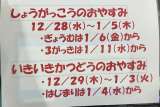 しょうがっこうのおやすみ
12/28(水)～1/5(木)
・ぎょうむは1/6(金)から
・3がっきは1/11(水)から
いきいきかつどうのおやすみ
12/29(木)～1/3(火)
・はじまりは1/4(水)から